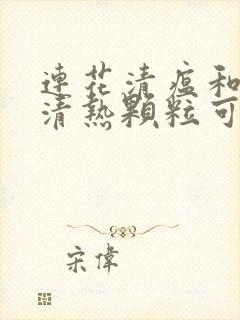 連花清瘟和
清熱顆粒可
宋偉